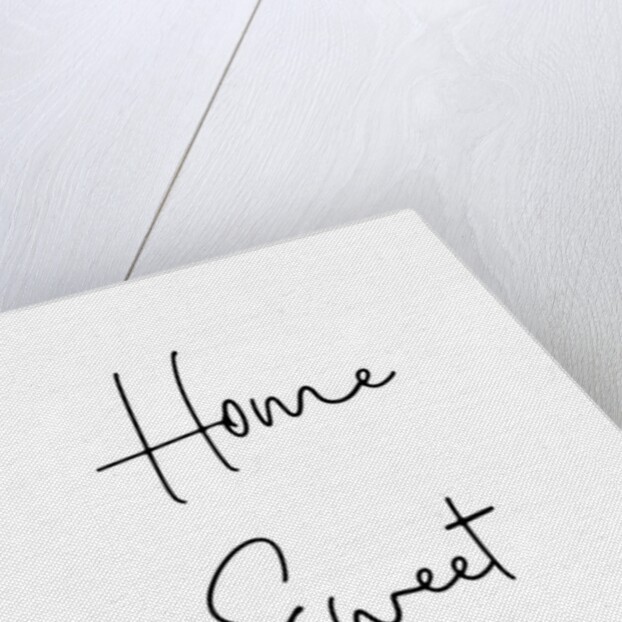 Home
Sweet